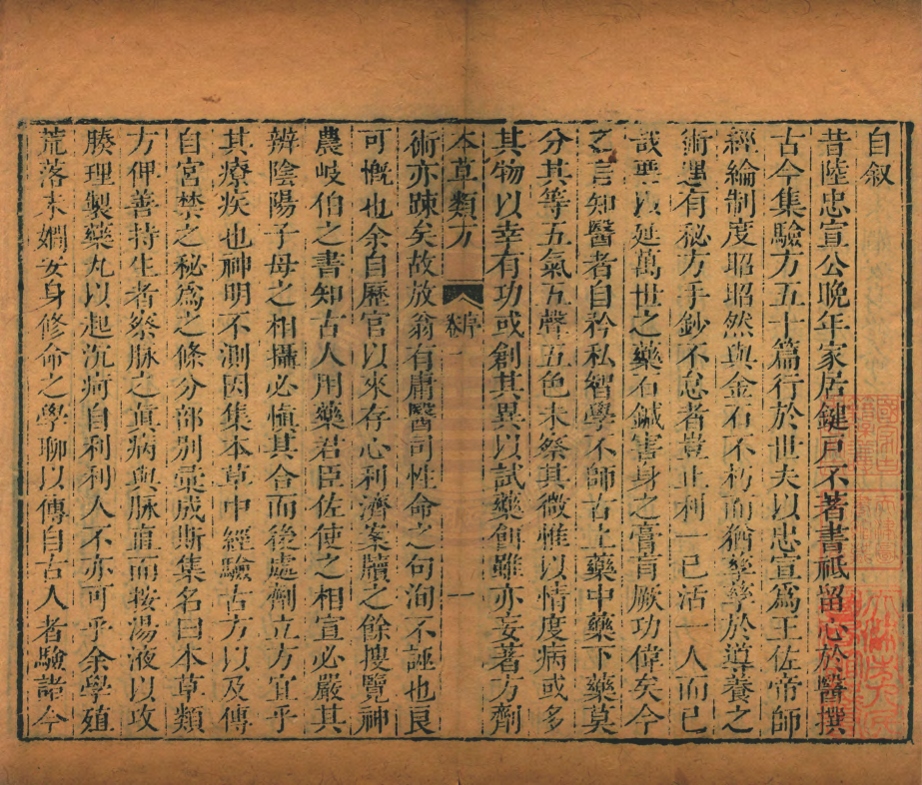 自叙
昔陸忠宣公晚年家居鍵戸不著書祗留心於醫撰
古今集驗方五十篇行於世夫以忠宣爲王佐帝師
經綸制度昭昭然與金石不朽而猶孳孳於導養之
術遇有秘方手鈔不怠者豈止利一已活一人而已
哉壐以延萬世之藥石鍼害身之膏肓厥功偉矣今
之言知醫者自矜私智學不師古上藥中藥下藥莫
分其等五氣五聲五色未察其微惟以情度病或多
其物以幸有功或創其異以試藥餌雖亦妄著方劑
本草類方 序 卷一 一
術亦踈矣故放翁有庸醫司性命之句洵不誣也良
可慨也余自歷官以來存心利濟案牘之餘搜覽神
農岐伯之書知古人用藥君臣佐使之相宣必嚴其
辨陰陽子母之相攝必慎其合而後處劑立方宜乎
其療疾也神明不測因集本草中經驗古方以及傳
自宮禁之秘爲之條分部别彚成斯集名曰本草類
方俾善持生者察脉之眞病與脉直而按湯液以攻
腠理製藥丸以起沉疴自利利人不亦可乎余學殖
荒落未嫺安身修命之學聊以傳自古人者驗諸今